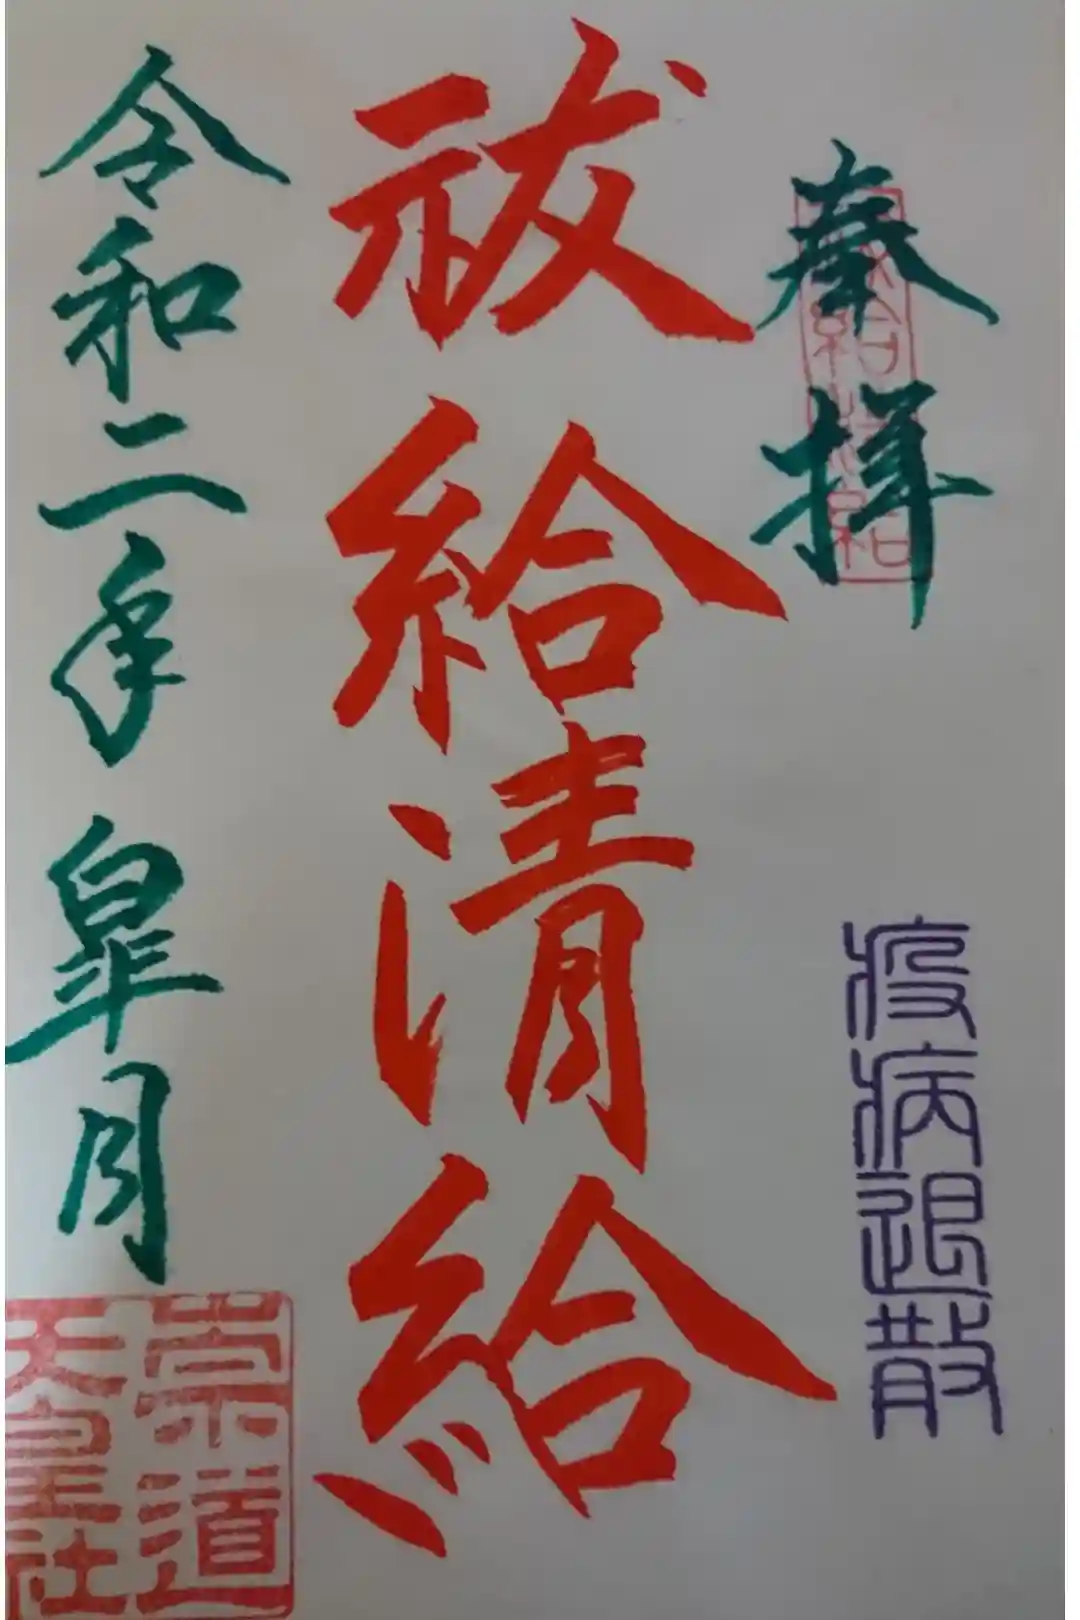 奉拝
疫病退散
祓給清給
令和二年 皐月
崇道
天皇社